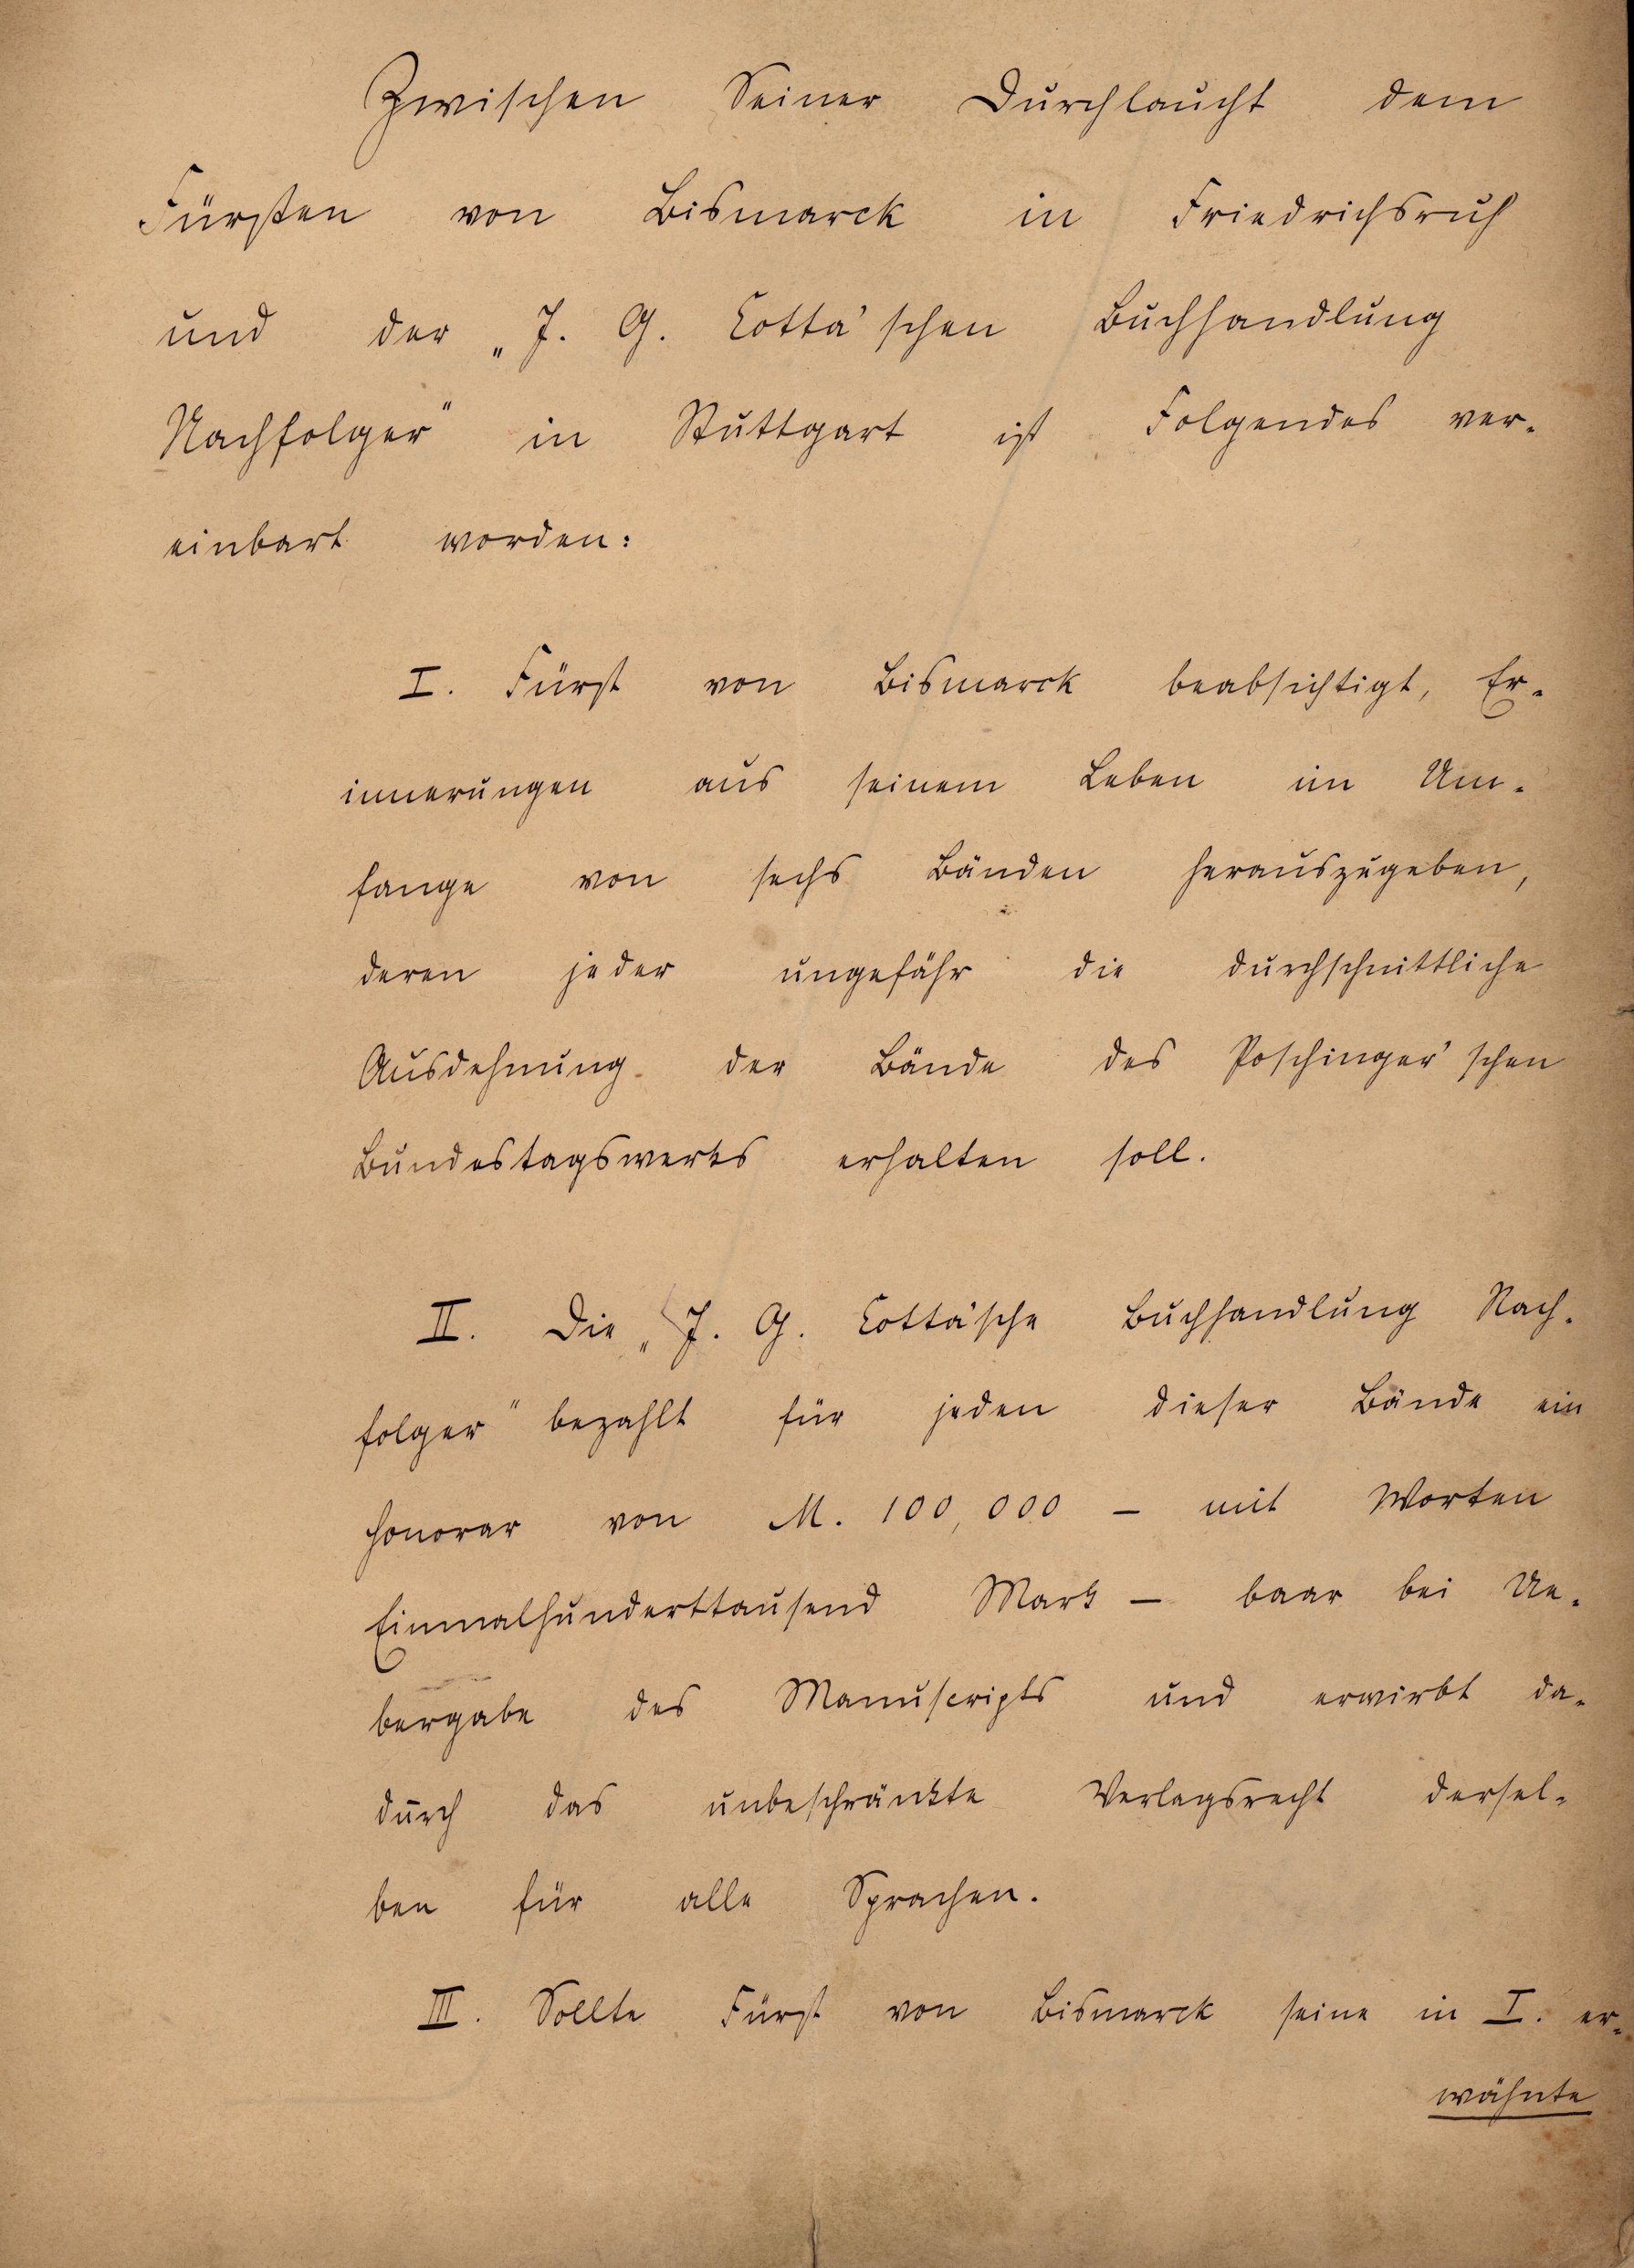 Zwischen Seiner Durchlaucht dem
Fürsten von Bismarck in Friedrichsruh
und der „J. G. Cotta'schen Buchhandlung
Nachfolger" in Stuttgart ist Folgendes ver-
einbart worden:
I. Fürst von Bismarck beabsichtigt, Er-
innerungen aus seinem Leben im Um-
fange von sechs Bänden herauszugeben,
deren jeder ungefähr die durchschnittliche
Ausdehnung der Bände des Poschinger'schen
Bundestagswerks erhalten soll.
II. Die „J. G. Cotta'sche Buchhandlung Nach-
folger" bezahlt für jeden dieser Bände ein
Honorar von M. 100,000 — mit Worten
Einmalhunderttausend Mark — baar bei Ue-
bergabe des Manuscripts und erwirbt da-
durch das unbeschränkte Verlagsrecht dersel-
ben für alle Sprachen.
III. Sollte Fürst von Bismarck seine in I. er-
wähnte